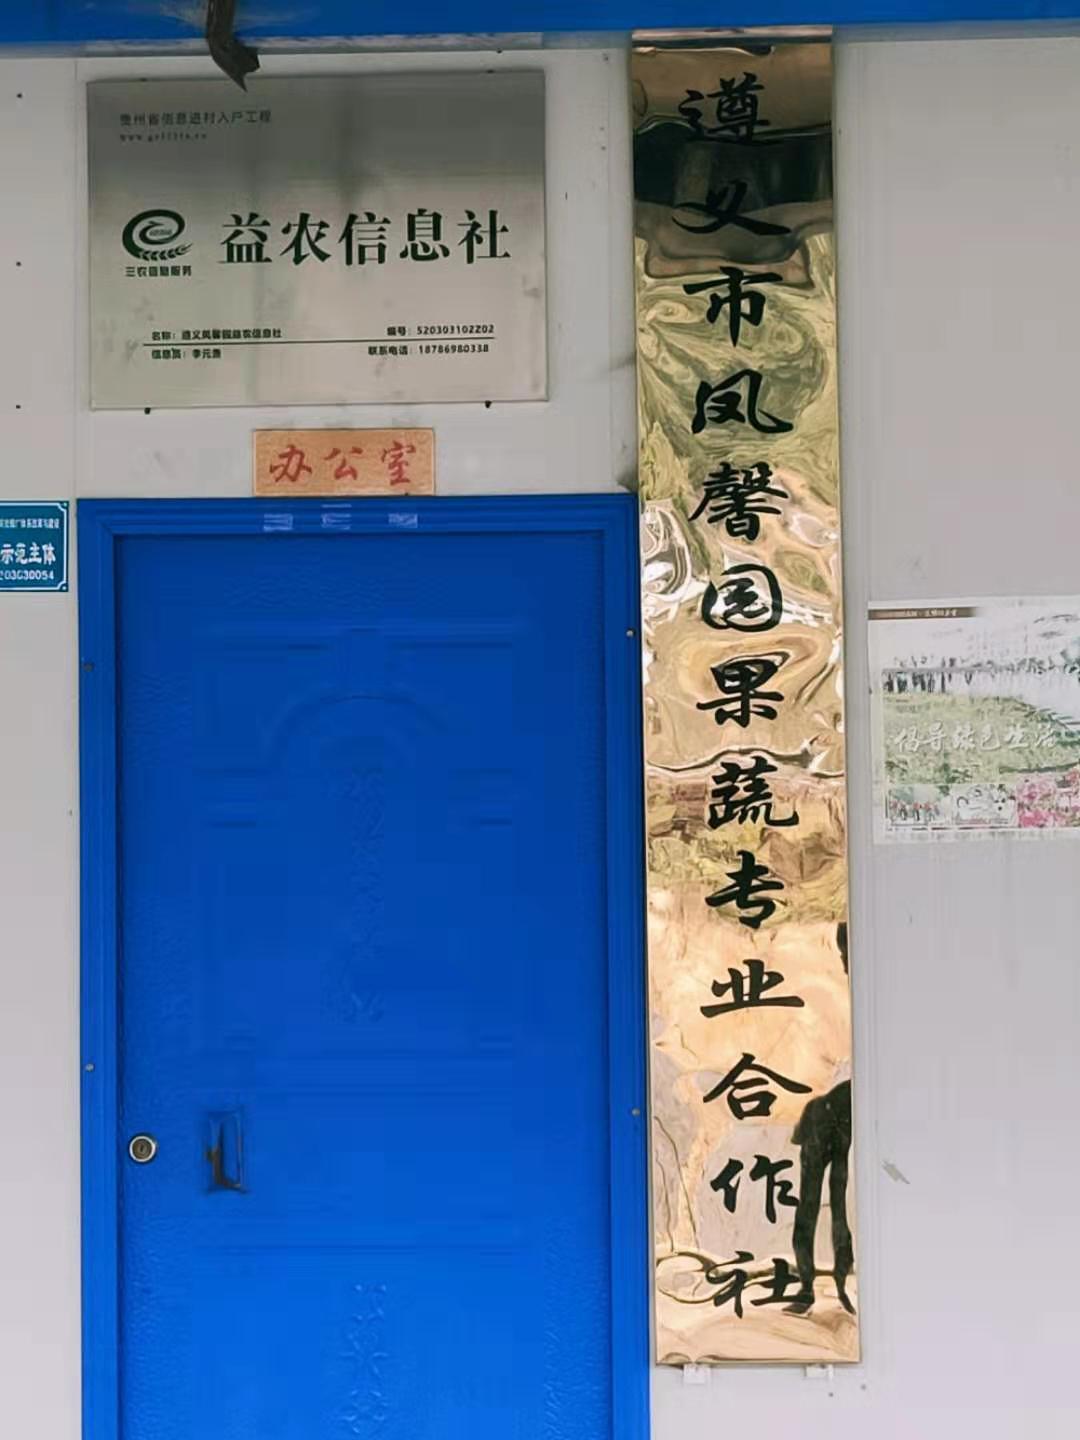 贵州省信息进村入户工程
益农信息社
三农信息服务
名称：遵义凤馨园益农信息社
编号：520303102202
信息员：李元贵
联系电话：18786980338
办公室
示范主体
203030054
遵义市凤馨园果蔬专业合作社
倡导绿色生活